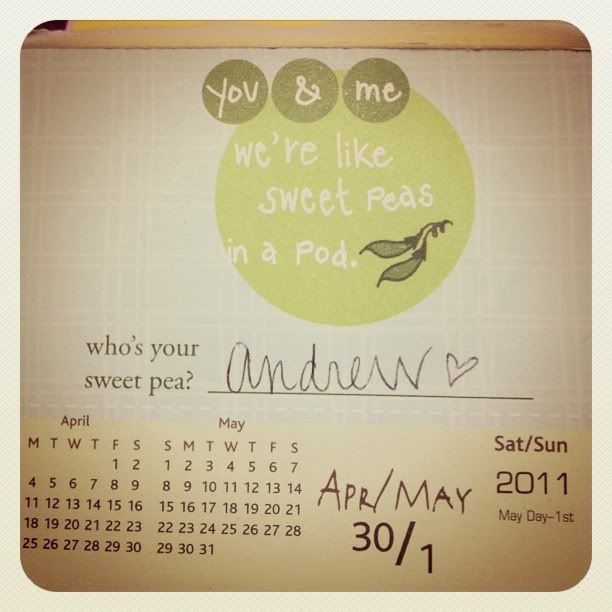 you & me
we're like
sweet peas
in a pod.
who's your
sweet pea? andrew ♡
April
M T W T F S
1 2
4 5 6 7 8 9
11 12 13 14 15 16
18 19 20 21 22 23
25 26 27 28 29 30
May
S M T W T F S
1 2 3 4 5 6 7
8 9 10 11 12 13 14
15 16 17 18 19 20 21
22 23 24 25 26 27 28
29 30 31
APR/MAY
30/1
Sat/Sun
2011
May Day–1st